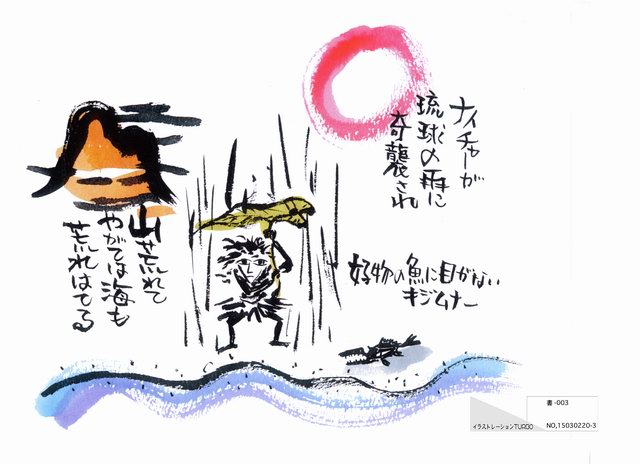 ナイチャーが
琉球の雨に
奇襲され
好物の魚に目がない
キジムナー
山荒れて
やがては海も
荒れはてる
書-003
イラストレーションTURBO
NO,15030220-3